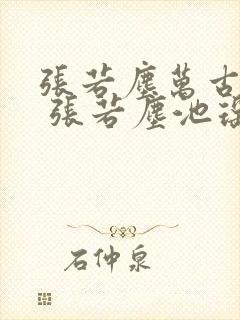 張若塵萬古
張若塵池
石仲泉